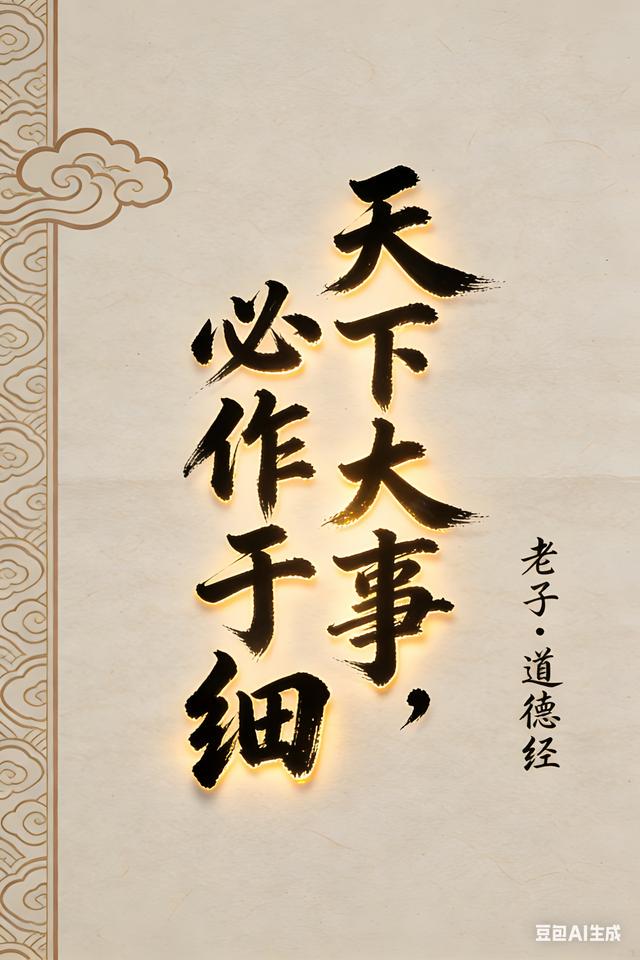 天下大事，
必作于细
老子·道德经
豆包AI生成